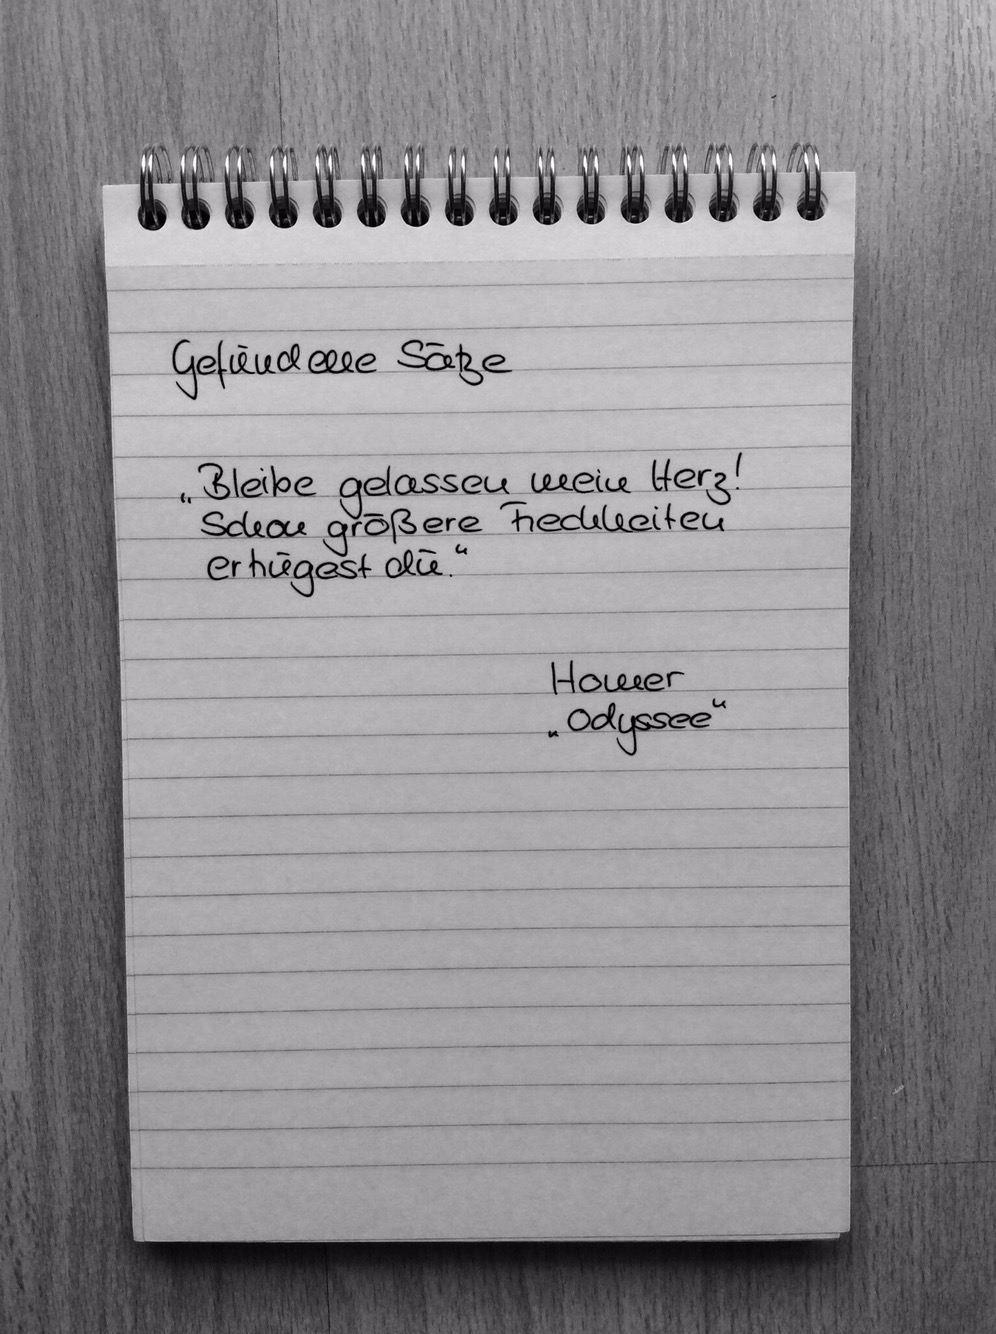 Gefundene Sätze
„Bleibe gelassen mein Herz!
Schon größere Frechheiten
ertrugest du.“
Homer
„Odyssee“